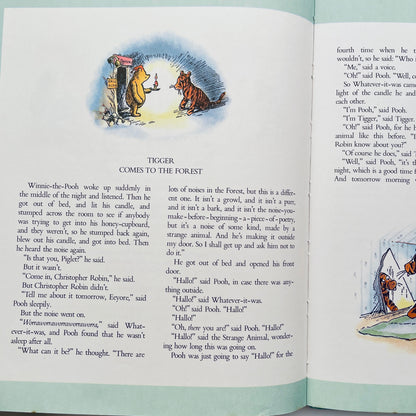 TIGGER
COMES TO THE FOREST
Winnie-the-Pooh woke up suddenly in
the middle of the night and listened. Then he
got out of bed, and lit his candle, and
stumped across the room to see if anybody
was trying to get into his honey-cupboard,
and they weren't, so he stumped back again,
blew out his candle, and got into bed. Then
he heard the noise again.
"Is that you, Piglet?" he said.
But it wasn't.
"Come in, Christopher Robin," he said.
But Christopher Robin didn't.
"Tell me about it tomorrow, Eeyore," said
Pooh sleepily.
But the noise went on.
"Worraworraworraworraworra," said What-
ever-it-was, and Pooh found that he wasn't
asleep after all.
"What can it be?" he thought. "There are
lots of noises in the Forest, but this is a differ-
ent one. It isn't a growl, and it isn't a purr,
and it isn't a bark, and it isn't the noise-you-
make-before-beginning-a-piece-of-poetry,
but it's a noise of some kind, made by a
strange animal. And he's making it outside
my door. So I shall get up and ask him not to
do it."
He got out of bed and opened his front
door.
"Hallo!" said Pooh, in case there was any-
thing outside.
"Hallo!" said Whatever-it-was.
"Oh!" said Pooh. "Hallo!"
"Hallo!"
"Oh, there you are!" said Pooh. "Hallo!"
"Hallo!" said the Strange Animal, wonder-
ing how long this was going on.
Pooh was just going to say "Hallo!" for the
fourth time when he t
wouldn't, so he said: "Who
"Me," said a voice.
"Oh!" said Pooh. "Well, c
So Whatever-it-was came
light of the candle he and
each other.
"I'm Pooh," said Pooh.
"I'm Tigger," said Tigger
"Oh!" said Pooh, for he h
animal like this before. "
Robin know about you?"
"Of course he does," said T
"Well," said Pooh, "it's t
night, which is a good time f
And tomorrow morning